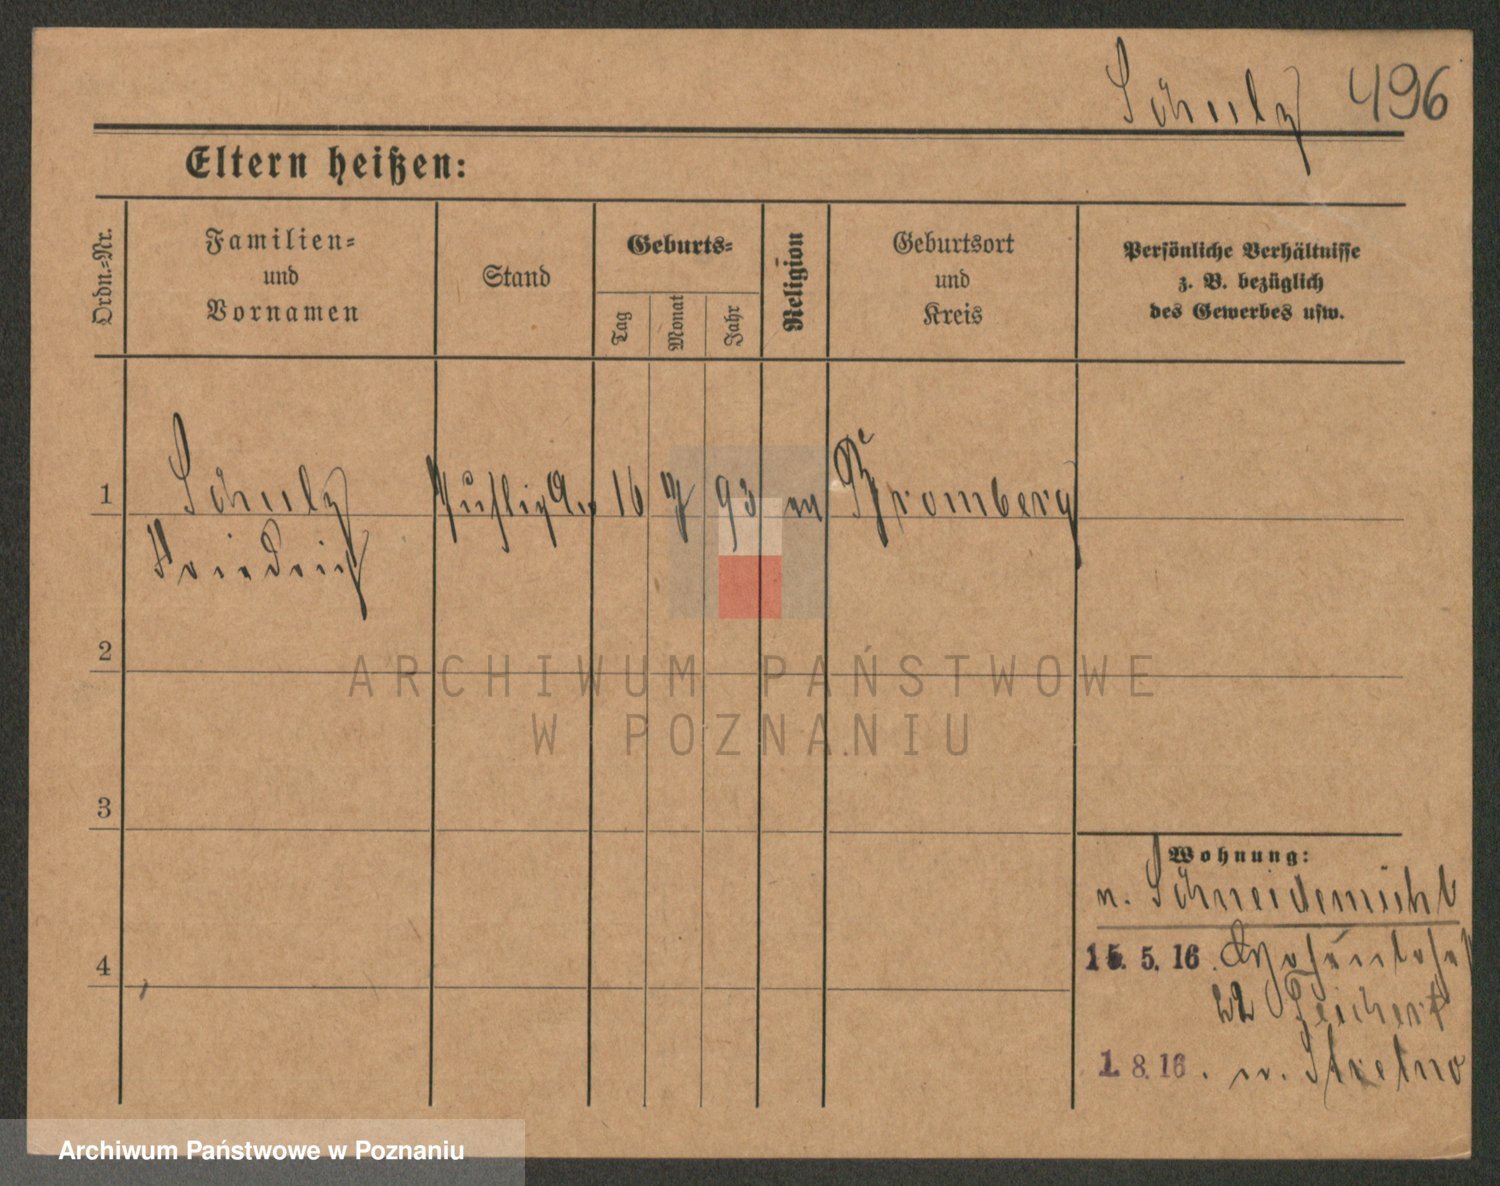 Schulz 496
Eltern heißen:
Ordn.-Nr.
Familien-
und
Vornamen
Stand
Geburts-
Tag
Monat
Jahr
Religion
Geburtsort
und
Kreis
Persönliche Verhältnisse
z. B. bezüglich
des Gewerbes usw.
1 Schulz 16 93 Bromberg
Friedrich
2
3
4
Wohnung:
n. Schneidemühl
15. 5. 16.
22 Teichert
1. 8. 16. n. Strelno
ARCHIWUM PAŃSTWOWE
W POZNANIU
Archiwum Państwowe w Poznaniu